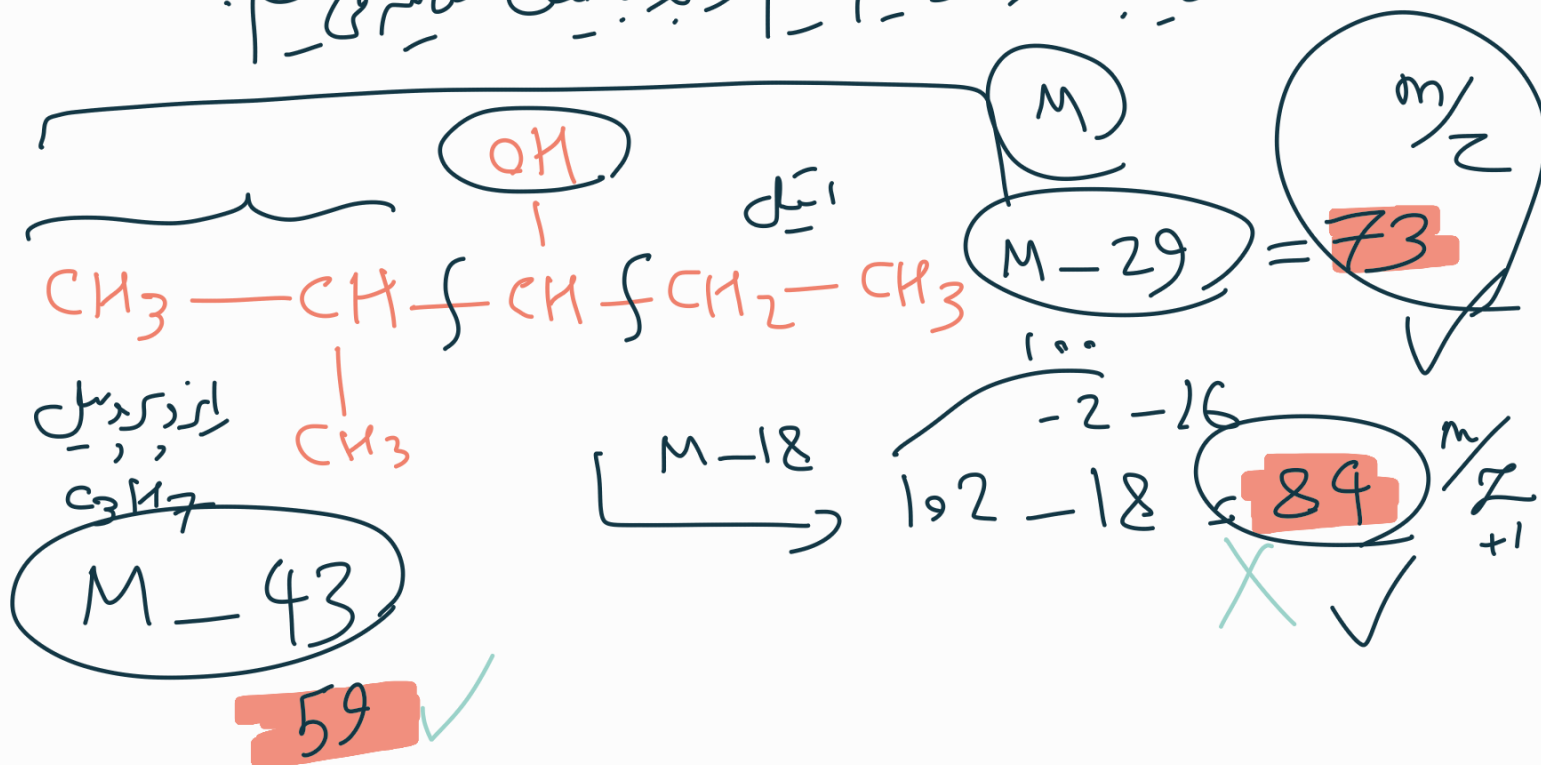 M
m/z
OH
اتیل
M-29 = 73
CH3 — CH — CH — CH2 — CH3
CH3
ایزوپروپیل
C3H7
M-43
59
M-18
100
-2-16
102-18 = 84 m/z
+1